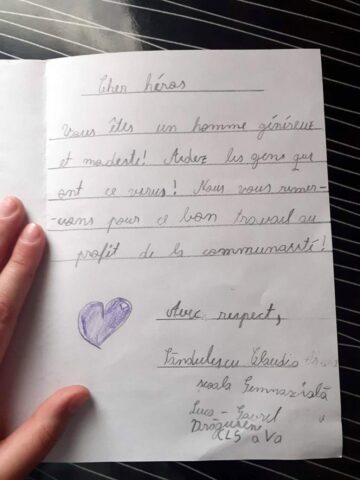 Cher héros
Vous êtes un homme généreux
et modeste! Aidez les gens que
ont ce virus! Nous vous remer-
-cions pour ce bon travail au
profit de la communauté!
Avec respect,
Săndulescu Claudia
școala Gimnazială
Luca - Gavril
Drăgușeni
CLS a Va